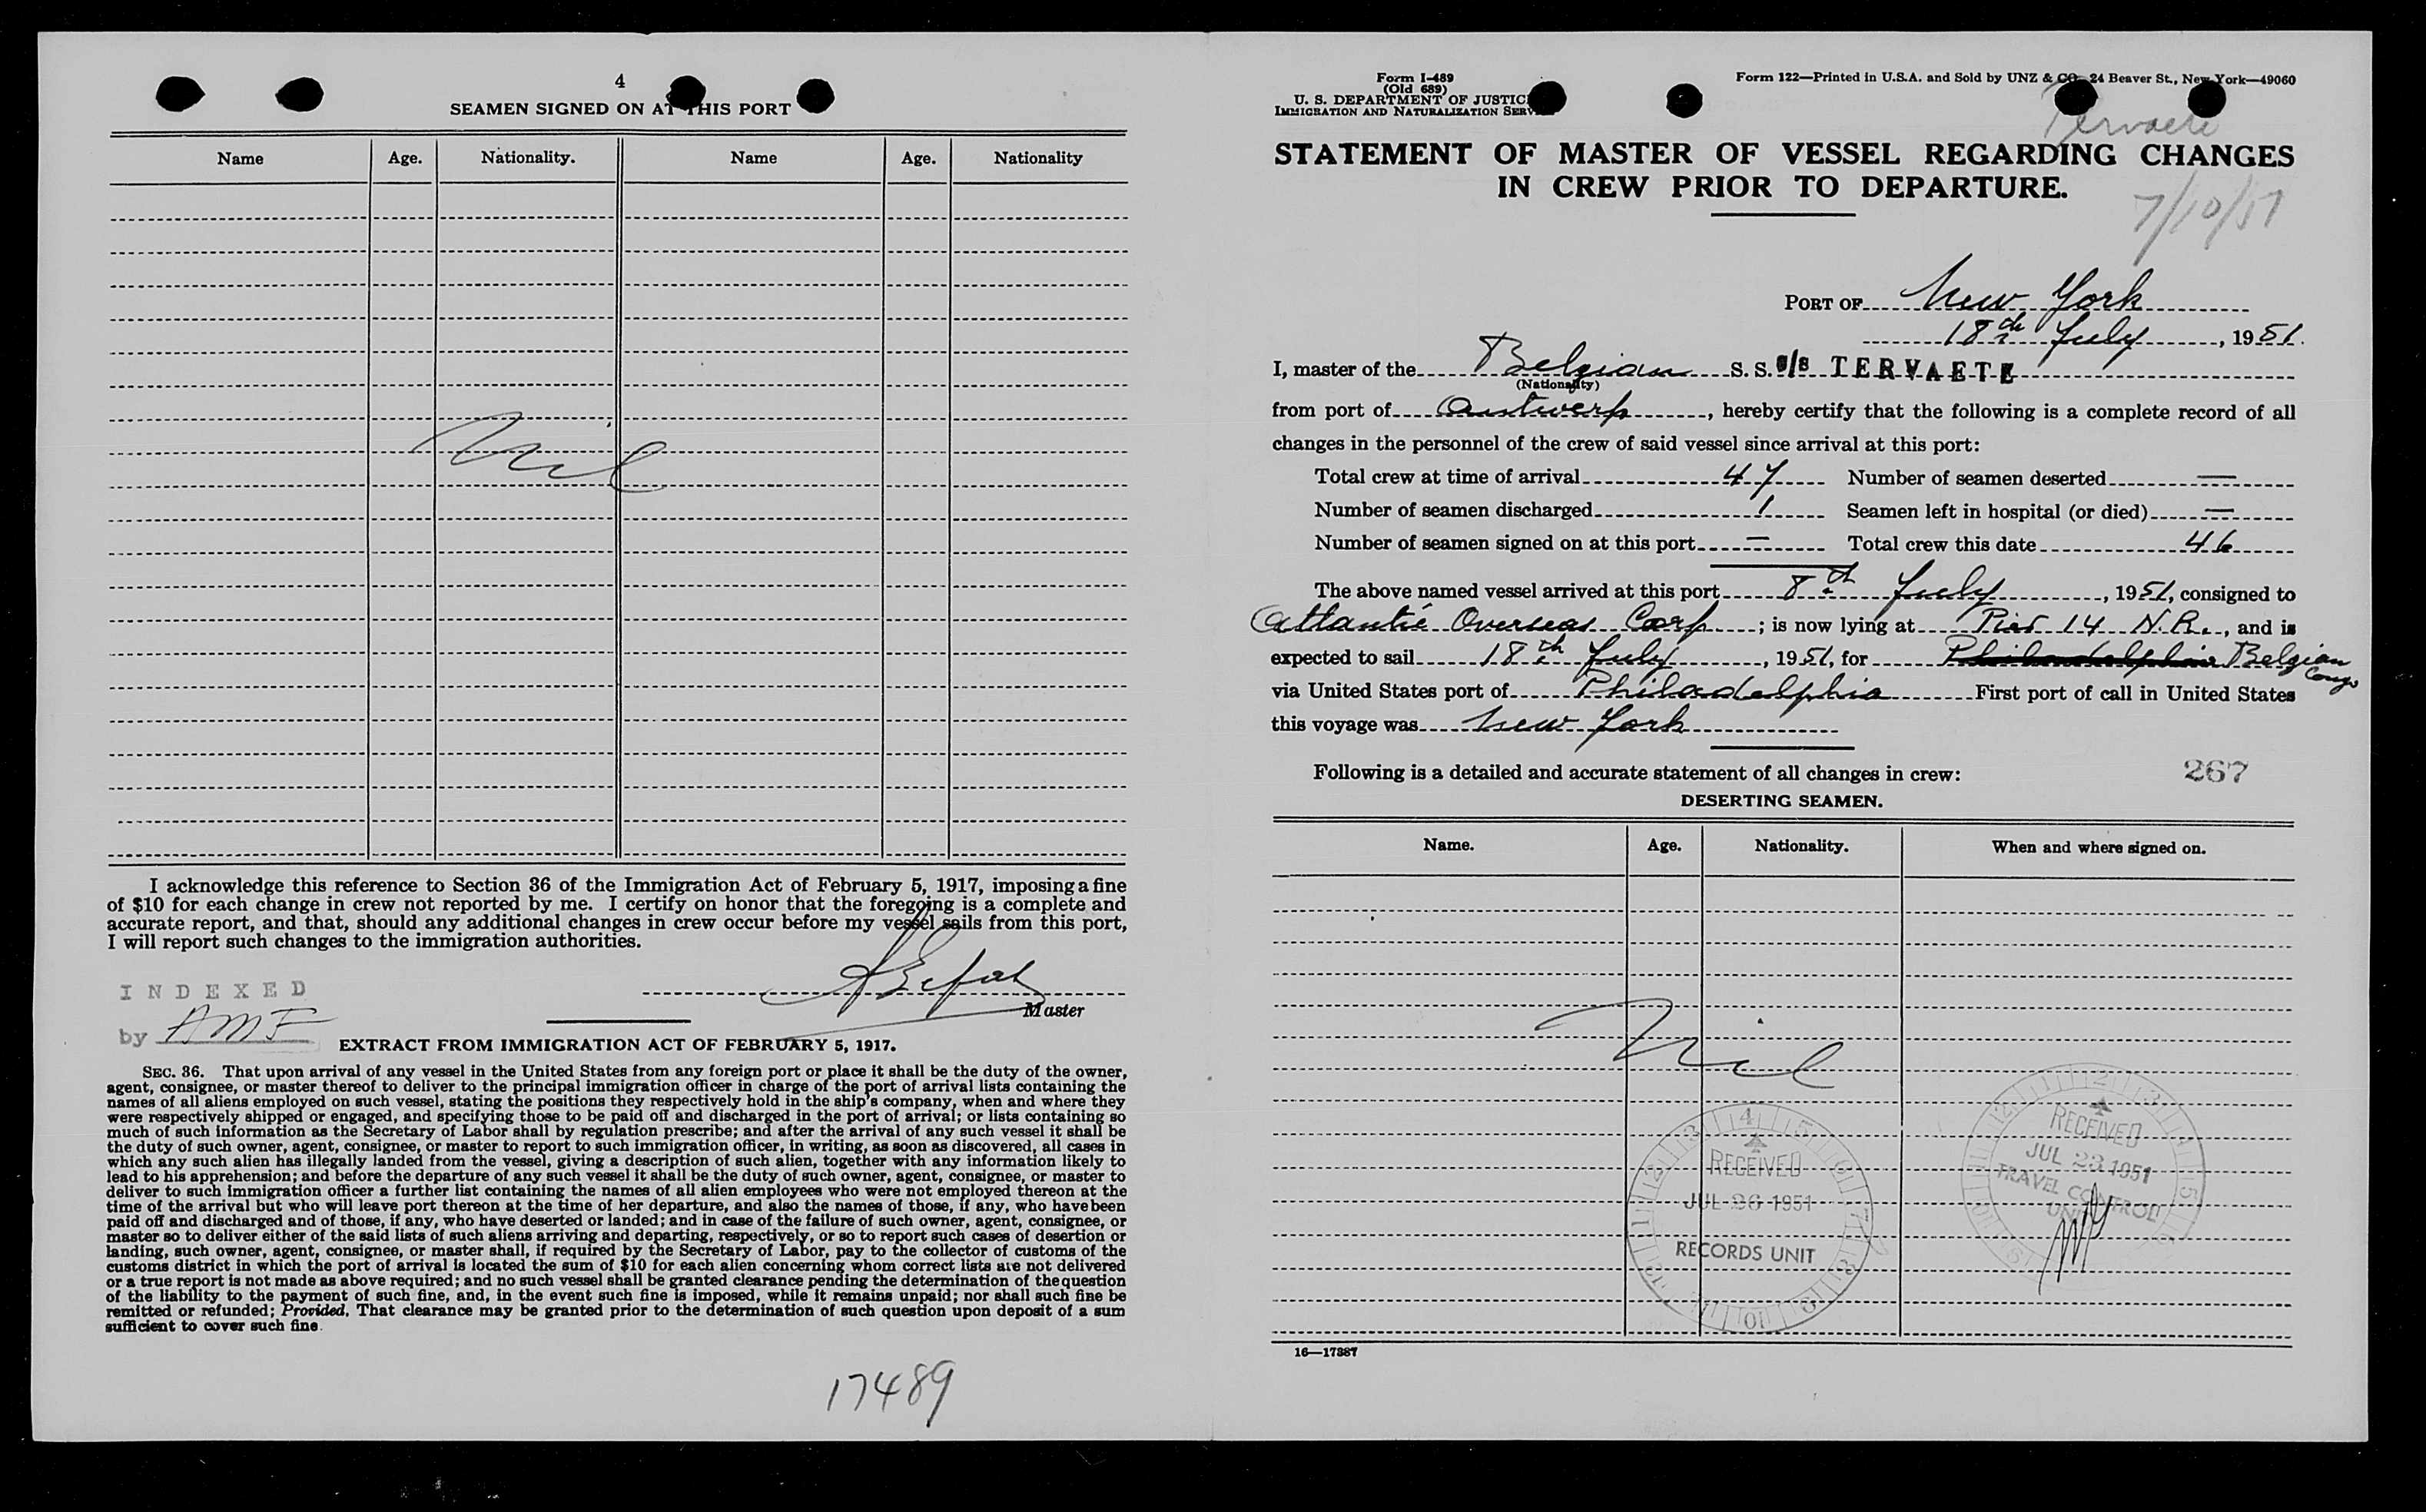 4
SEAMEN SIGNED ON AT THIS PORT
Name Age. Nationality. Name Age. Nationality
Nil
I acknowledge this reference to Section 36 of the Immigration Act of February 5, 1917, imposing a fine
of $10 for each change in crew not reported by me. I certify on honor that the foregoing is a complete and
accurate report, and that, should any additional changes in crew occur before my vessel sails from this port,
I will report such changes to the immigration authorities.
Master
INDEXED
by AMF
EXTRACT FROM IMMIGRATION ACT OF FEBRUARY 5, 1917.
SEC. 36. That upon arrival of any vessel in the United States from any foreign port or place it shall be the duty of the owner,
agent, consignee, or master thereof to deliver to the principal immigration officer in charge of the port of arrival lists containing the
names of all aliens employed on such vessel, stating the positions they respectively hold in the ship's company, when and where they
were respectively shipped or engaged, and specifying those to be paid off and discharged in the port of arrival; or lists containing so
much of such information as the Secretary of Labor shall by regulation prescribe; and after the arrival of any such vessel it shall be
the duty of such owner, agent, consignee, or master to report to such immigration officer, in writing, as soon as discovered, all cases in
which any such alien has illegally landed from the vessel, giving a description of such alien, together with any information likely to
lead to his apprehension; and before the departure of any such vessel it shall be the duty of such owner, agent, consignee, or master to
deliver to such immigration officer a further list containing the names of all alien employees who were not employed thereon at the
time of the arrival but who will leave port thereon at the time of her departure, and also the names of those, if any, who have been
paid off and discharged and of those, if any, who have deserted or landed; and in case of the failure of such owner, agent, consignee, or
master so to deliver either of the said lists of such aliens arriving and departing, respectively, or so to report such cases of desertion or
landing, such owner, agent, consignee, or master shall, if required by the Secretary of Labor, pay to the collector of customs of the
customs district in which the port of arrival is located the sum of $10 for each alien concerning whom correct lists are not delivered
or a true report is not made as above required; and no such vessel shall be granted clearance pending the determination of the question
of the liability to the payment of such fine, and, in the event such fine is imposed, while it remains unpaid; nor shall such fine be
remitted or refunded; Provided, That clearance may be granted prior to the determination of such question upon deposit of a sum
sufficient to cover such fine.
17489
Form I-489
(Old 689)
U. S. DEPARTMENT OF JUSTICE
IMMIGRATION AND NATURALIZATION SERVICE
Form 122—Printed in U.S.A. and Sold by UNZ & CO. 24 Beaver St., New York—49060
Tervaete
STATEMENT OF MASTER OF VESSEL REGARDING CHANGES
IN CREW PRIOR TO DEPARTURE.
7/10/51
PORT OF New York
18th July, 1951.
I, master of the Belgian S. S. s/s TERVAETE
(Nationality)
from port of Antwerp, hereby certify that the following is a complete record of all
changes in the personnel of the crew of said vessel since arrival at this port:
Total crew at time of arrival 47 Number of seamen deserted —
Number of seamen discharged 1 Seamen left in hospital (or died) —
Number of seamen signed on at this port — Total crew this date 46
The above named vessel arrived at this port 8th July, 1951, consigned to
Atlantic Overseas Corp; is now lying at Pier 14 N.R., and is
expected to sail 18th July, 1951, for Philadelphia Belgian Congo
via United States port of Philadelphia First port of call in United States
this voyage was New York
Following is a detailed and accurate statement of all changes in crew:
267
DESERTING SEAMEN.
Name. Age. Nationality. When and where signed on.
Nil
RECEIVED
JUL 23 1951
TRAVEL CONTROL
UNIT
RECEIVED
JUL 26 1951
RECORDS UNIT
16—17387